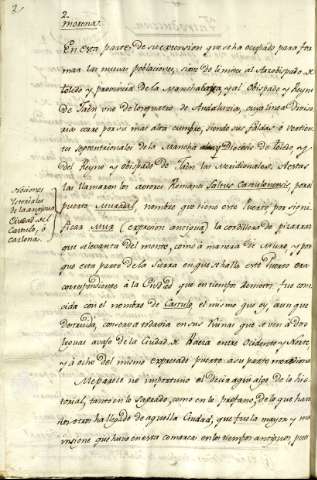 2
2.
morena.
En esta parte de su extension que se ha ocupado para for
mar las nuevas poblaciones, sirve de limite al Arzobispado de
Toledo y provincia de la Mancha y al Obispado y Reyno
de Jaén uno de los quatro de Andalucia, cuya linea diviso
ria corre por su mas alta cumbre, siendo sus faldas o vertien
tes septentrionales de la Mancha y Diocesis de Toledo y
del Reyno y obispado de Jaen las Meridionales. A estas
las llamaron los autores Romanos Saltus Castulonensis, pero
puerto Muradal, nombre que tiene este Puerto por signi
ficar Mura (expresion antigua) la cordillera de pizarras
que se levanta del monte, como à manera de Muro, y por
que esta parte de la Sierra en que se halla este Puerto era
correspondiente à la Ciudad que en tiempo remoto fue cono
cida con el nombre de Castulo, el mismo que oy, aunque
derrotada, conserva todavia en sus Ruinas que se ven à dos
leguas avajo de la Ciudad de Baeza entre Occidente y Norte
y à ocho del mismo expresado puerto à su parte meridional.
Me parece no importuno el decir aqui algo de lo his
torial, tanto en lo sagrado, como en lo profano, de lo que han
otros ha llegado de aquella Ciudad, que fue la mayor y mas
insigne que huvo en esta comarca en los tiempos antiguos, pues
Notiones
Ystoriales
de la antigua
Ciudad de
Castulo, ò
Cazlona.